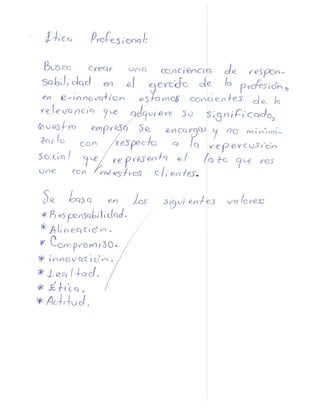 Etica Profesional:
Busca crear una conciencia de respon-
sabilidad en el ejercicio de la profesión,
en e-innovation estamos concientes de la
relevancia que adquiere su significado,
nuestra empresa se encarga y no minimi-
zarlo con respecto a la repercusión
social que representa el lazo que nos
une con nuestros clientes.
Se basa en los siguientes valores:
* Responsabilidad.
* Alineación.
* Compromiso.
* innovación.
* Lealtad.
* Ética.
* Actitud.